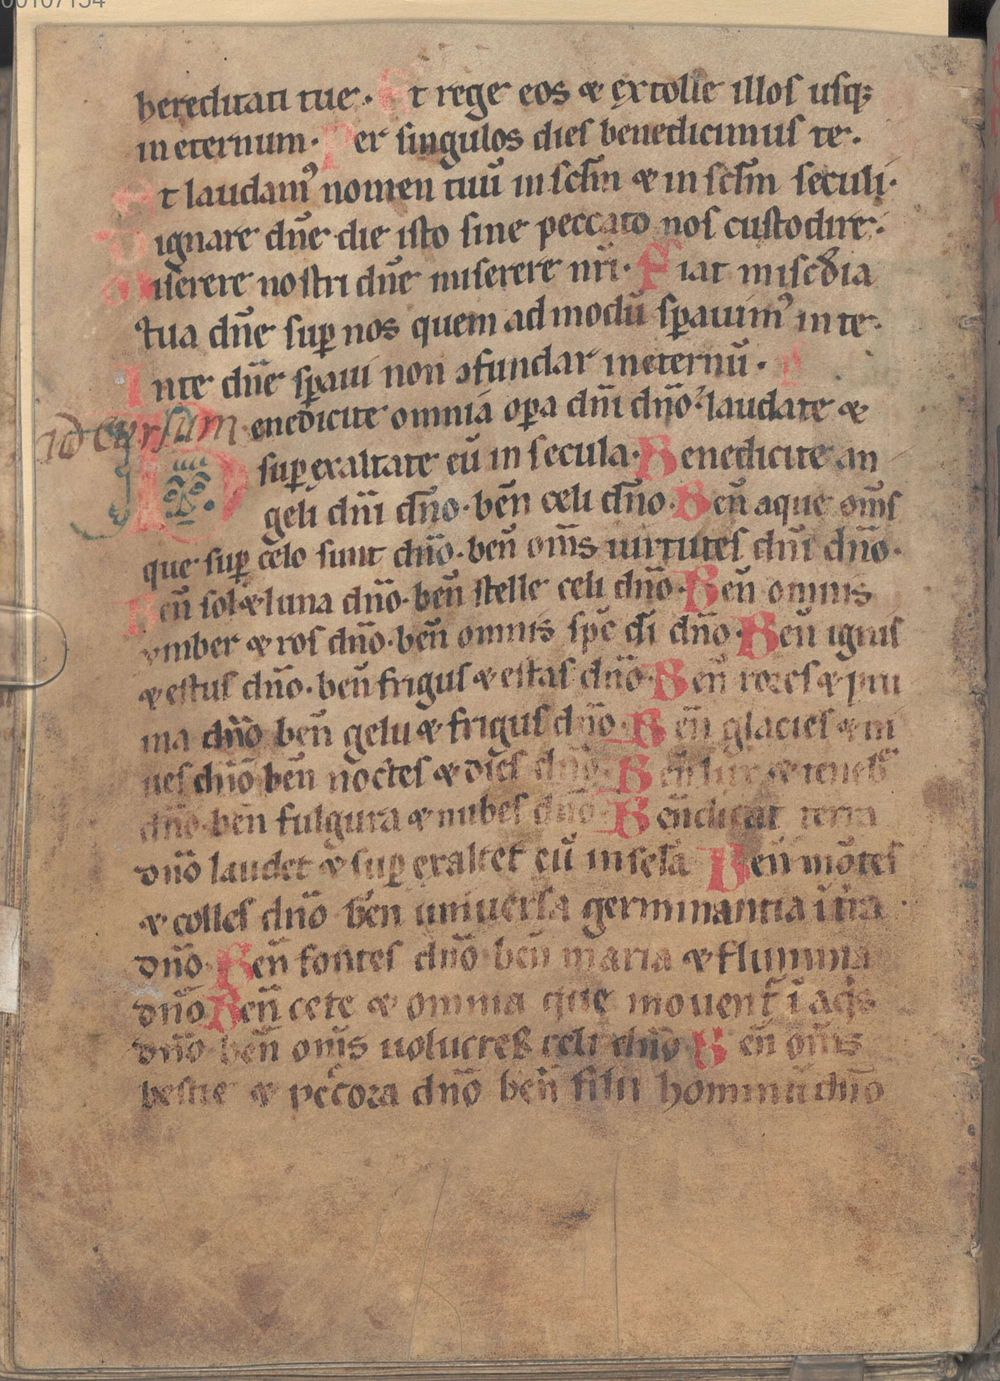 00107154
hereditati tue. Et rege eos & extolle illos usq;
in eternum. Per singulos dies benedicimus te.
Et laudamꝰ nomen tuū in sclm̄ & in sclm̄ seculi.
Dignare dn̄e die isto sine peccato nos custodire.
Miserere nostri dn̄e miserere nr̄i. Fiat misc̄dia
tua dn̄e suꝑ nos quem ad modū sꝑauimꝰ in te.
In te dn̄e sꝑaui non ꝯfundar in eternū.
Benedicite omnia oꝑa dn̄i dn̄o. laudate &
suꝑ exaltate eū in secula. Benedicite an
geli dn̄i dn̄o. ben̄ celi dn̄o. Ben̄ aque om̄s
que suꝑ celo sunt dn̄o. ben̄ om̄s uirtutes dn̄i dn̄o.
Ben̄ sol & luna dn̄o. ben̄ stelle celi dn̄o. Ben̄ omnis
ymber & ros dn̄o. ben̄ omnis sp̄c dī dn̄o. Ben̄ ignis
& estus dn̄o. ben̄ frigus & estas dn̄o. Ben̄ rores & pru
ina dn̄o ben̄ gelu & frigus dn̄o. Ben̄ glacies & ni
ues dn̄o ben̄ noctes & dies dn̄o. Ben̄ lux & teneb̄
dn̄o. ben̄ fulgura & nubes dn̄o. Ben̄dicat terra
dn̄o laudet & suꝑ exaltet eū in sc̄la Ben̄ mōtes
& colles dn̄o ben̄ uniuersa germinantia ī t̄ra
dn̄o. Ben̄ fontes dn̄o ben̄ maria & flumina
dn̄o Ben̄ cete & omnia que mouent̄ ī aq̄s
dn̄o ben̄ om̄s uolucres celi dn̄o Ben̄ om̄s
bestie & pecora dn̄o ben̄ filii hominū dn̄o